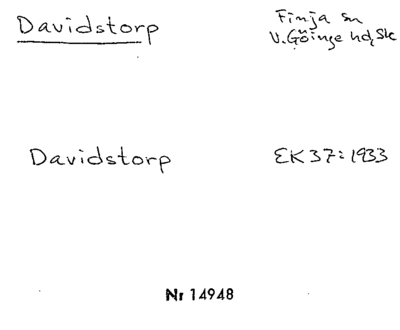 Davidstorp
Finja sn
V. Göinge hd, Sk
Davidstorp
EK 37: 1933
Nr 14948